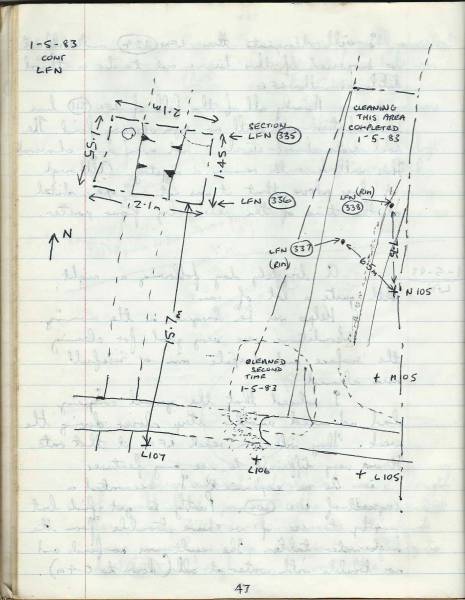 1-5-83
CONT
LFN
2.1m
1.55
SECTION
LFN 335
1.45
LFN 336
2.1m
N
15.7m
CLEANING
THIS AREA
COMPLETED
1-5-83
LFN (RIM)
338
LFN 337
(RIM)
6.5m
N105
CLEANED
SECOND
TIME
1-5-83
M105
L107
L106
L105
47